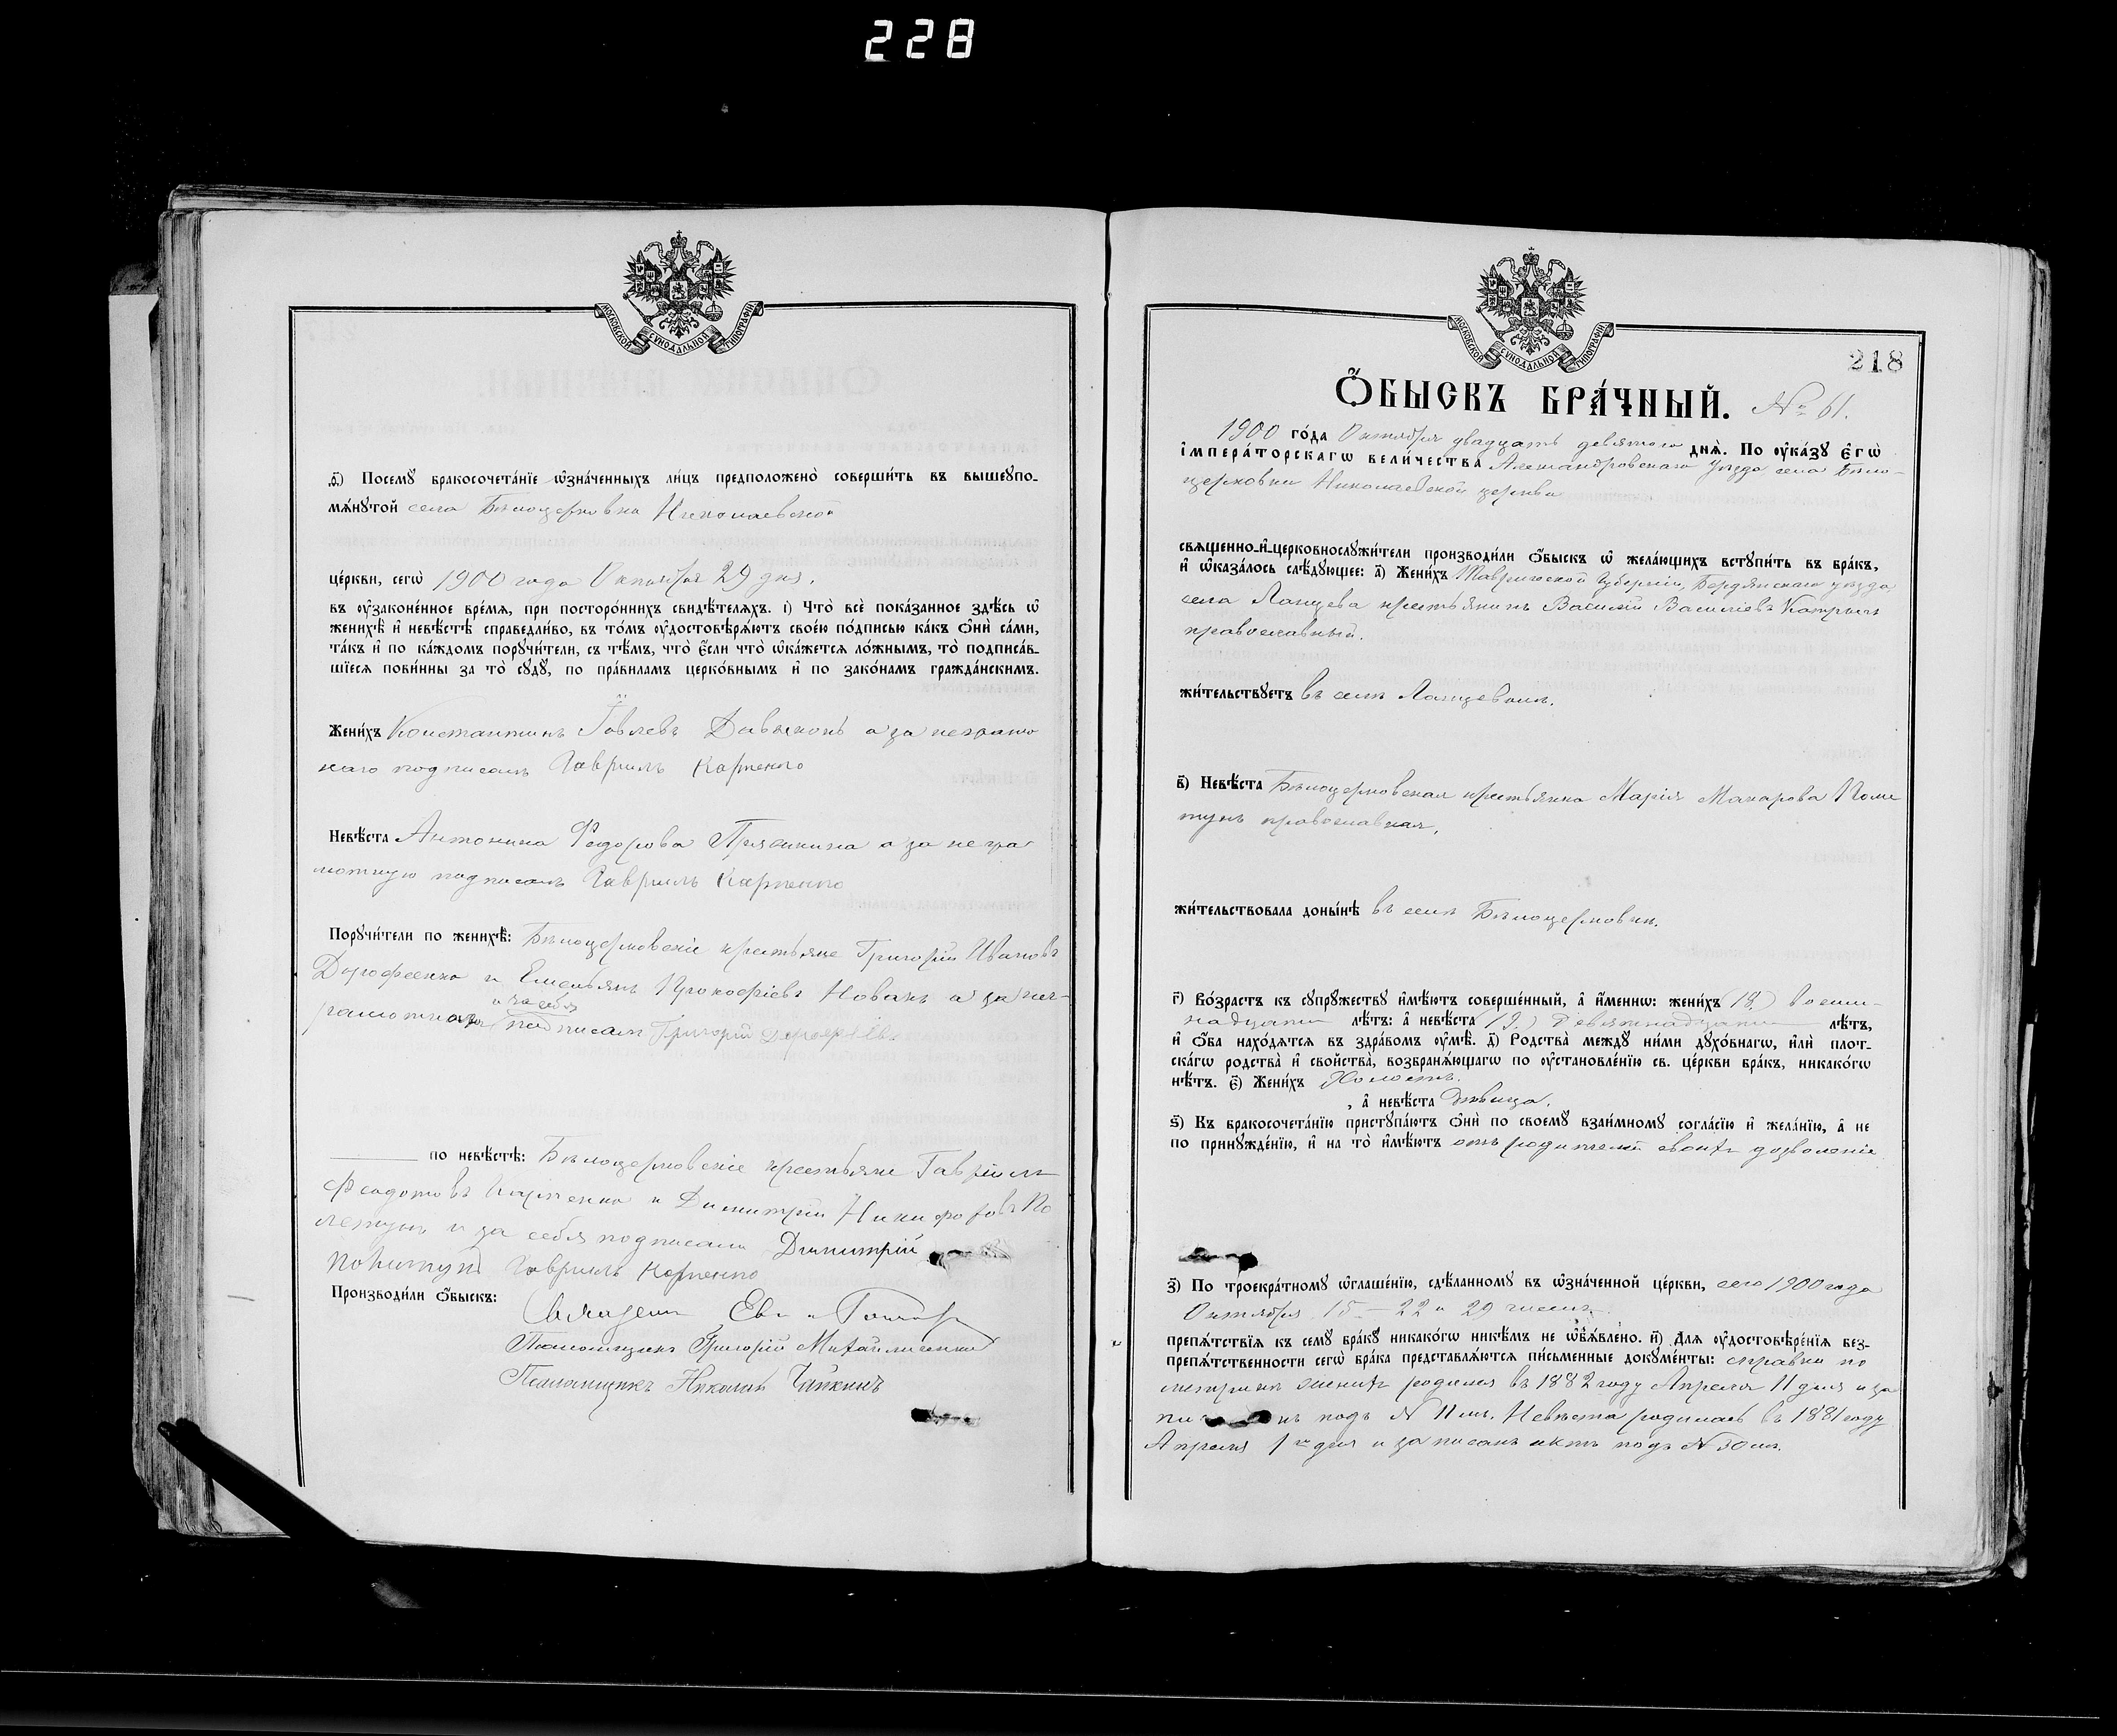 228
МОСКОВСКОЙ СѴНОДАЛЬНОЙ ТИПОГРАФІИ
ѳ҃) Посемꙋ̀ бракосочета́нїе ѡ҆зна́ченныхъ ли́цъ предположено̀ соверши́ть въ вышеꙋпо-
мѧ́нꙋтой села Бѣлоцерковки Николаевской
це́ркви, сегѡ̀ 1900 года Октября 29 дня.
въ ᲂу҆зако́ненное вре́мѧ, при посторо́ннихъ свидѣ́телѧхъ. і҃) Что̀ всѐ пока́занное здѣ́сь ѡ҆
женихѣ̀ и҆ невѣ́стѣ справедли́во, въ то́мъ ᲂу҆достовѣрѧ́ютъ свое́ю по́дписью ка́къ ѻ҆нѝ са́ми,
та́къ и҆ по ка́ждомъ порꙋчи́тели, съ тѣ́мъ, что̀ є҆́сли что̀ ѡ҆ка́жетсѧ ло́жнымъ, то̀ подписа́в-
шїесѧ пови́нны за то̀ сꙋдꙋ̀, по пра́виламъ церко́внымъ и҆ по зако́намъ гражда́нскимъ.
Жени́хъ Константинъ а за неграмот
наго подписалъ Гаврiилъ Карпенко
Невѣ́ста Антонина Федорова а за негра
мотную подписалъ Гаврiилъ Карпенко
Порꙋчи́тели по женихѣ̀: Бѣлоцерковскіе крестьяне Григорій Ивановъ
Дорофеенко и Емельянъ Прокофіевъ Новакъ а за не-
и за себя
грамотнаго подписалъ Григорій
по невѣ́стѣ: Бѣлоцерковскіе крестьяне Гавріилъ
Феодотовъ Карпенко и Димитрій Никифоровъ По
летунъ и за себя подписали Димитрій
Политунъ Гавріилъ Карпенко
Производи́ли ѻ҆́быскъ: Священ
Псаломщикъ Григорій Михайличенко
Псаломщикъ Николай Чайкинъ
МОСКОВСКОЙ СѴНОДАЛЬНОЙ ТИПОГРАФІИ
218
Ѻ҆́БЫСКЪ БРА́ЧНЫЙ. № 61.
1900 го́да Октября двадцать девятаго днѧ̀. По ᲂу҆ка́зꙋ є҆гѡ̀
і҆мпера́торскагѡ вели́чества Александровскаго уѣзда села Бѣло-
церковки Николаевской церкви
свѧще́нно-и҆-церковнослꙋжи́тели производи́ли ѻ҆́быскъ ѡ҆ жела́ющихъ вступи́ть въ бра́къ,
и҆ ѡ҆каза́лось слѣ́дꙋющее: а҃) Жени́хъ Таврической Губерніи, Бердянскаго уѣзда
села Ланцева крестьянинъ Василій Васильевъ
православный.
жи́тельствꙋетъ въ селѣ Ланцевкѣ.
в҃) Невѣ́ста Бѣлоцерковская крестьянка Марія Макарова Поле
тунъ православная.
жи́тельствовала доны́нѣ въ селѣ Бѣлоцерковкѣ.
г҃) Во́зрастъ къ сꙋпрꙋ́жествꙋ и҆мѣ́ютъ соверше́нный, а҆ и҆́меннѡ: жени́хъ (18) восем-
надцати лѣ́тъ: а҆ невѣ́ста (19.) девятнадцати лѣ́тъ,
и҆ ѻ҆́ба нахо́дѧтсѧ въ здра́вомъ ᲂу҆мѣ̀. д҃) Родства̀ междꙋ̀ ни́ми дꙋхо́внагѡ, и҆лѝ плот-
ска́гѡ родства̀ и҆ сво́йства, возбранѧ́ющагѡ по ᲂу҆становле́нїю св. це́ркви бра́къ, никако́гѡ
нѣ́тъ. є҃) Жени́хъ Холостъ.
, а҆ невѣ́ста Дѣвица.
ѕ҃) Къ бракосочета́нїю пристꙋпа́ютъ ѻ҆нѝ по своемꙋ̀ взаи́мномꙋ согла́сїю и҆ жела́нїю, а҆ не
по принꙋжде́нїю, и҆ на то̀ и҆мѣ́ютъ отъ родителей своихъ дозволеніе
з҃) По троекра́тномꙋ ѡ҆глаше́нїю, сдѣ́ланномꙋ въ ѡ҆зна́ченной це́ркви, сего 1900 года
Октября 15 – 22 и 29 чиселъ.
препѧ́тствїѧ къ семꙋ̀ бра́кꙋ никако́гѡ никѣ́мъ не ѡ҆б̾ѧ́влено. и҃) Длѧ ᲂу҆достовѣре́нїѧ без-
препѧ́тственности сегѡ̀ бра́ка представлѧ́ютсѧ пи́сьменные докꙋме́нты: справка по
метрикѣ женихъ родился въ 1882 году Апреля 11 дня и за
пи нъ подъ № 11 мъ. Невѣста родилась въ 1881 году
Апреля 1го дня и записанъ актъ подъ № 30 мъ.